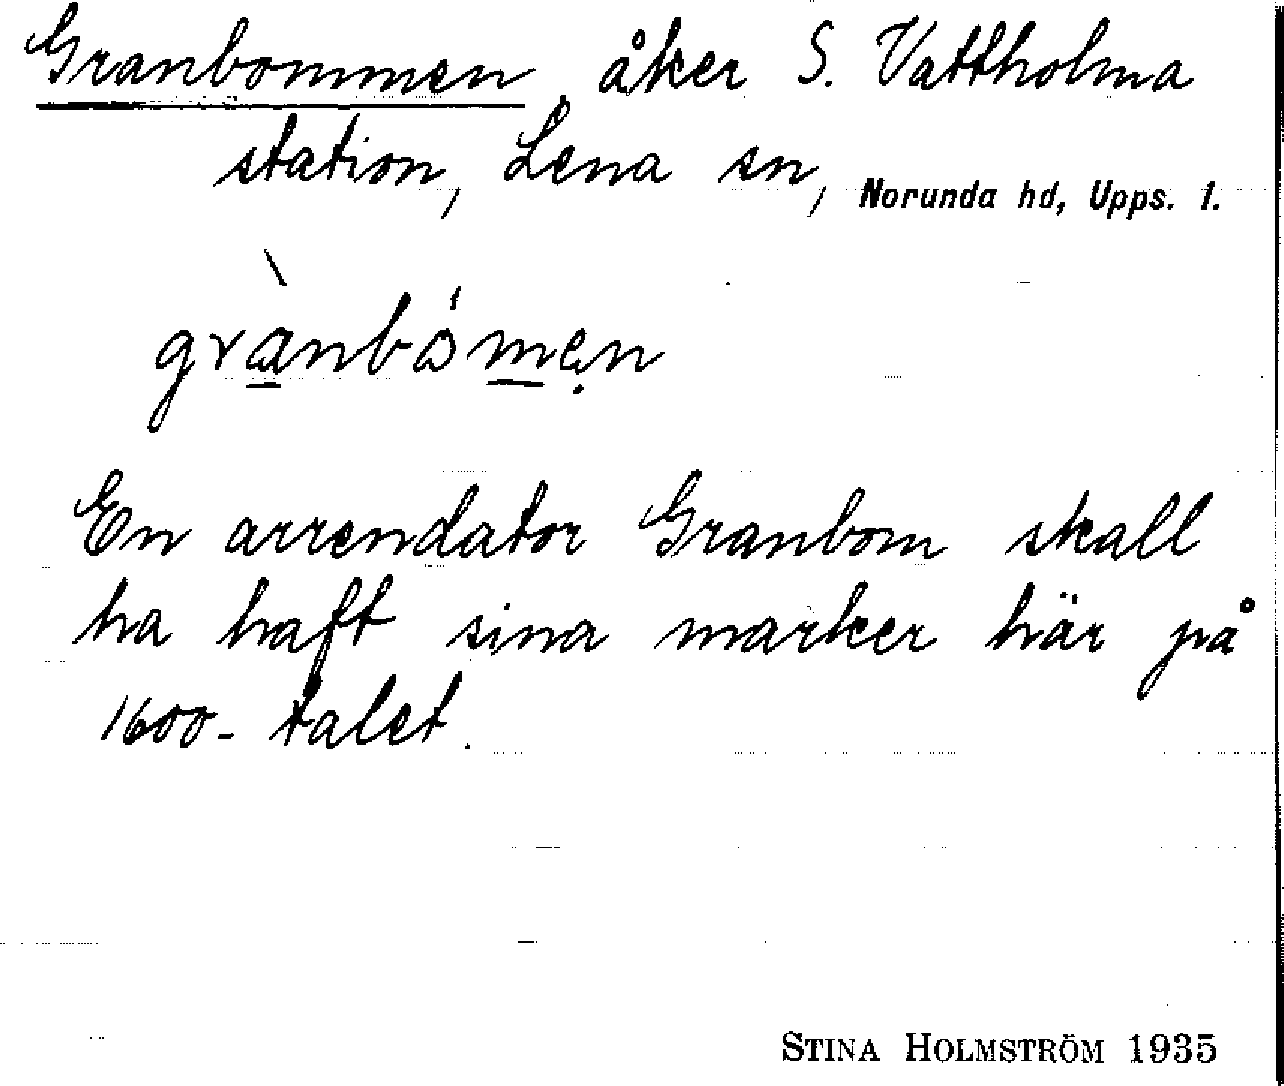 Granbommen, åker S. Vattholma
station, Lena sn, Norunda hd, Upps. l.
grànbómen
En arrendator Granbom skall
ha haft sina marker här på
1600-talet.
STINA HOLMSTRÖM 1935